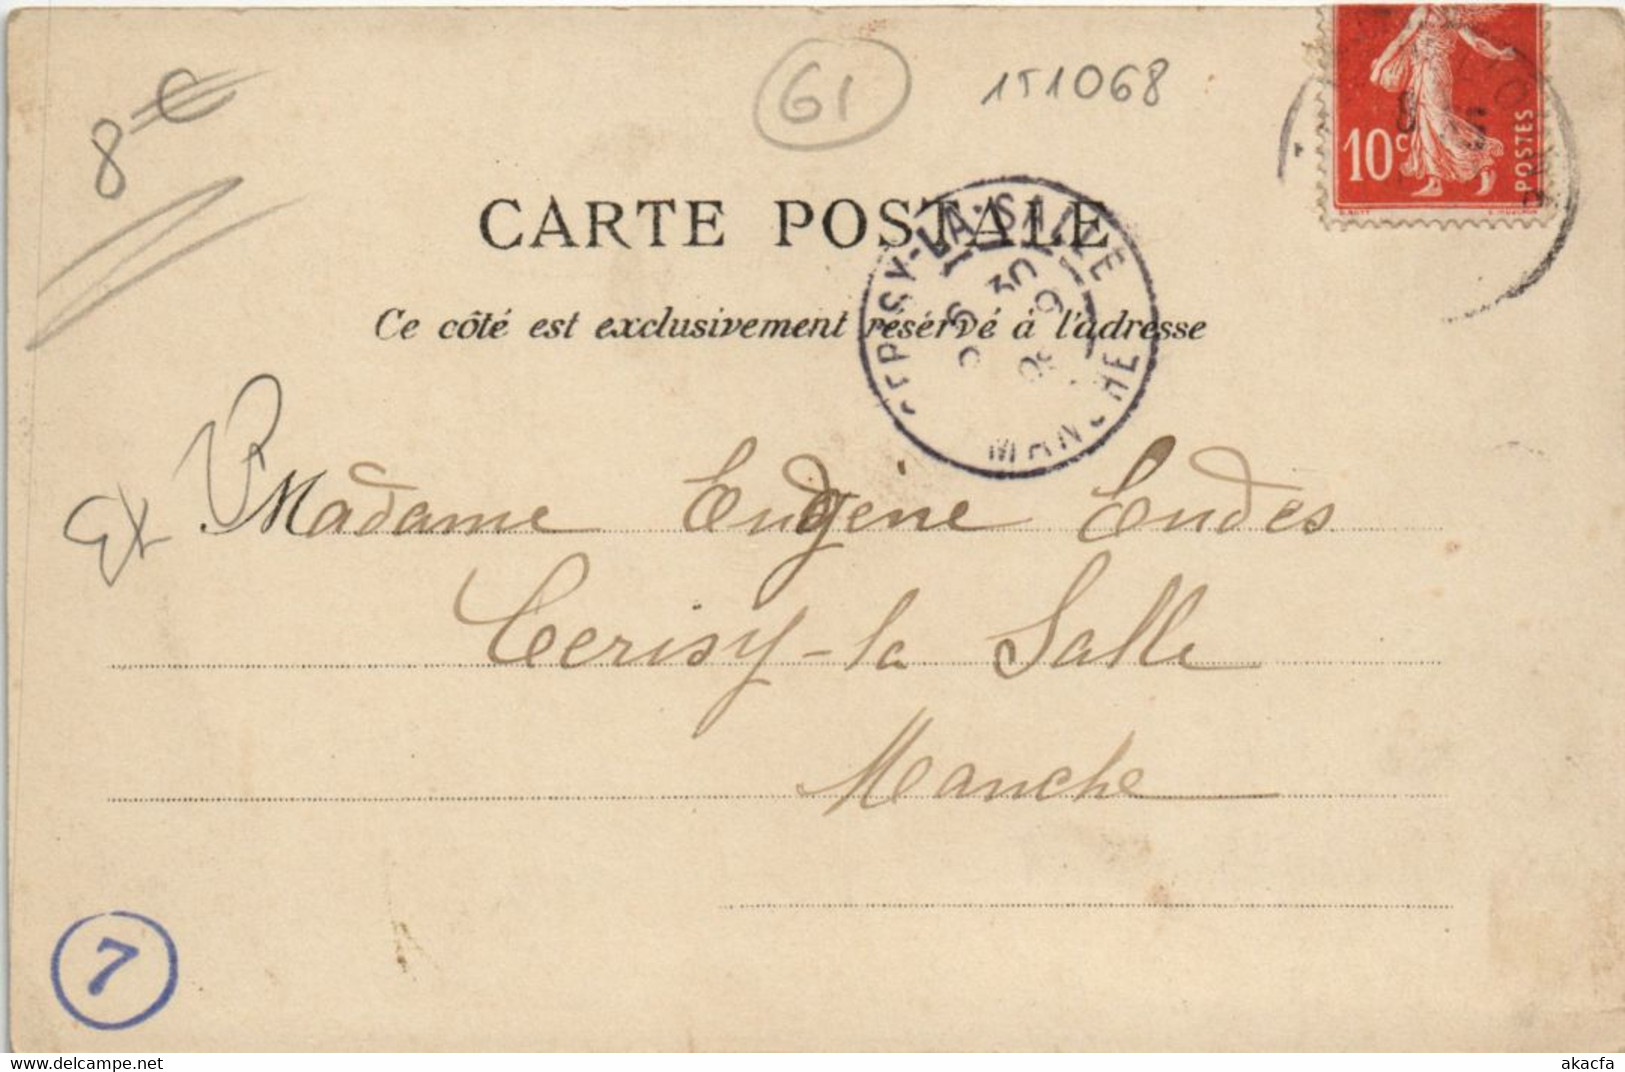 8€
61
151068
10c
POSTES
CARTE POSTALE
CERISY-LA-SALLE
MANCHE
Ce côté est exclusivement reservé á l'adresse
Madame Eugène Eudes
Ex
Cerisy-la Salle
Manche
7
akacfa